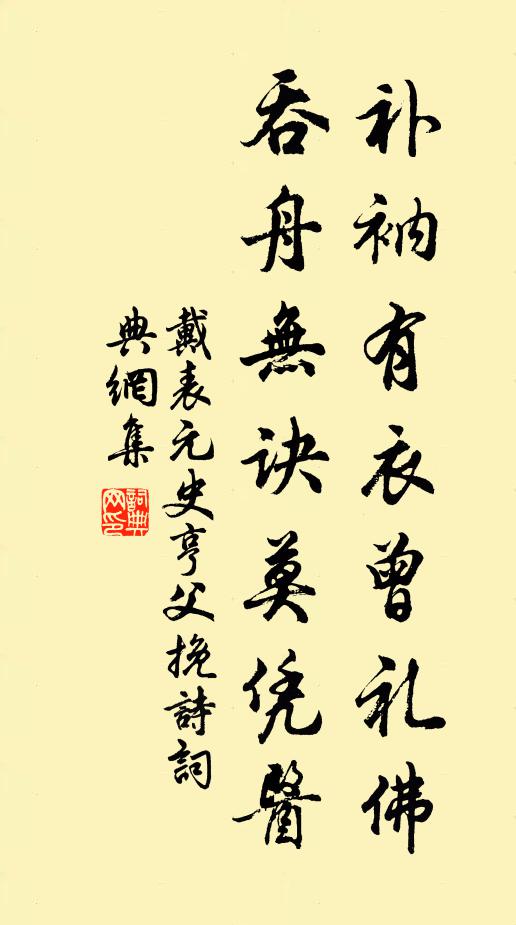 补衲有衣曾礼佛
吞舟無诀莫凭醫
戴表元史亨父挽詩詞
典網集
詞典
网印